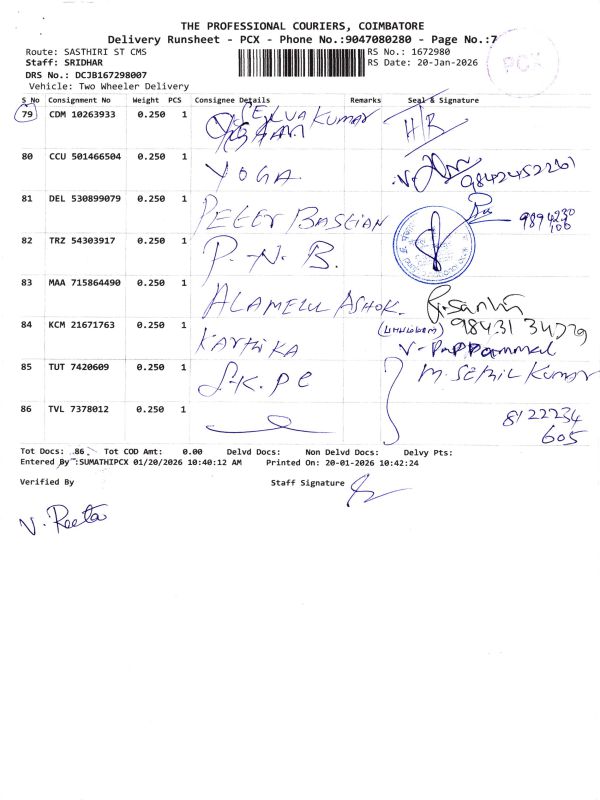 THE PROFESSIONAL COURIERS, COIMBATORE
Delivery Runsheet - PCX - Phone No.:9047080280 - Page No.:7
Route: SASTHIRI ST CMS RS No.: 1672980
Staff: SRIDHAR RS Date: 20-Jan-2026
DRS No.: DCJB167298007
Vehicle: Two Wheeler Delivery
PCX
S No Consignment No Weight PCS Consignee Details Remarks Seal & Signature
79 CDM 10263933 0.250 1 SELVA KUMAR H/R
80 CCU 501466504 0.250 1 YOGA 9842452261
81 DEL 530899079 0.250 1 PETER BASTIAN 9894230
106
82 TRZ 54303917 0.250 1 P.N.B.
83 MAA 715864490 0.250 1 ALAMELU ASHOK.
98431 34779
84 KCM 21671763 0.250 1 KARTHIKA V-Pappammal
85 TUT 7420609 0.250 1 S.K.PC M. SETHIL KUMAR
86 TVL 7378012 0.250 1 8122234
605
Tot Docs: 86 Tot COD Amt: 0.00 Delvd Docs: Non Delvd Docs: Delvy Pts:
Entered By :SUMATHIPCX 01/20/2026 10:40:12 AM Printed On: 20-01-2026 10:42:24
Verified By Staff Signature
V. Reeta